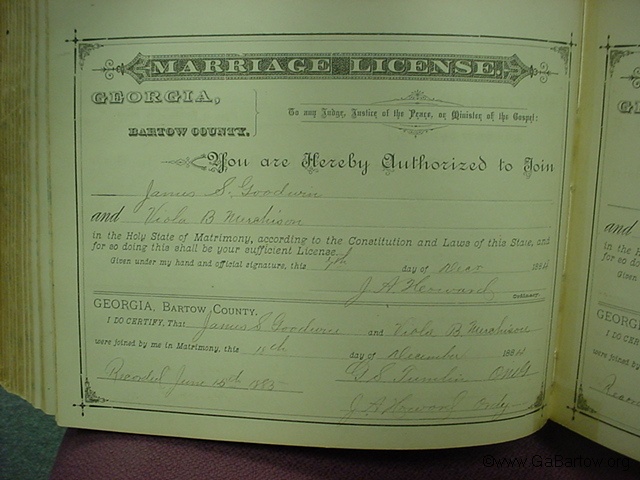 MARRIAGE LICENSE.
GEORGIA,
BARTOW COUNTY.
To any Judge, Justice of the Peace, or Minister of the Gospel:
You are Hereby Authorized to Join
James S. Goodwin
and Viola B Murchison
in the Holy State of Matrimony, according to the Constitution and Laws of this State, and
for so doing this shall be your sufficient License.
Given under my hand and official signature, this day of 1884
J A Howard
Ordinary.
GEORGIA, BARTOW COUNTY.
I DO CERTIFY, That James S Goodwin and Viola B Murchison
were joined by me in Matrimony, this 11th day of December 1884
Recorded June 15th 1885
G S Tumlin
J A Howard Ordy
©www.GaBartow.org
and
in the H
for so
Given
GEORG
I DO CE
were joined